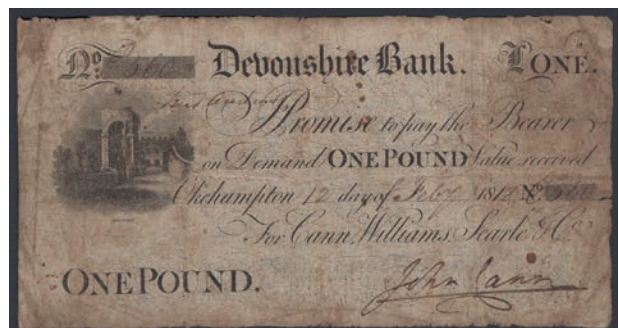 No. 560 Devonshire Bank. £ONE.
Promise to pay the Bearer
on Demand ONE POUND Value received
Okehampton 12 day of Feby 181 No. 560
For Cann, Williams, Searle & Co
ONE POUND. John Cann